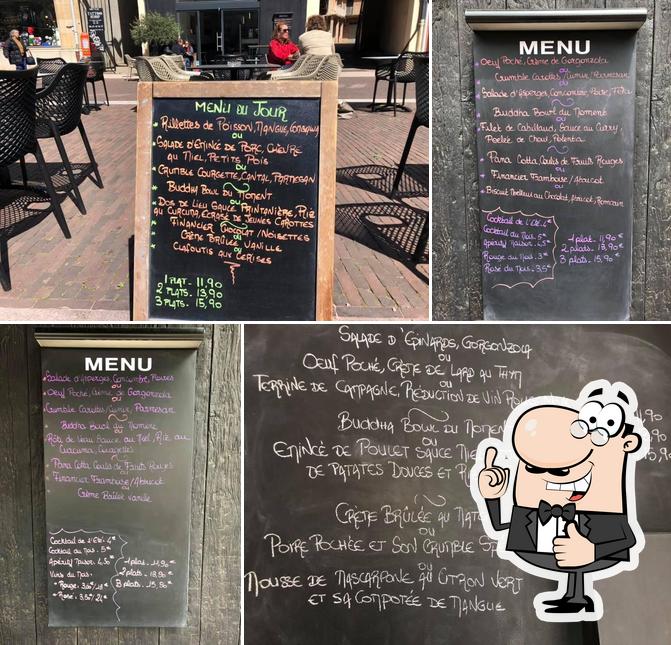 MENU DU JOUR
Rillettes de Poisson, Mangue,
ou
Salade d'Emincé de Porc, Chèvre
au Miel, Petits Pois
ou
Crumble Courgette, Cantal, Parmesan
Buddha Bowl du Moment
ou
Dos de Lieu Sauce Printanière, Riz
au Curcuma, Ecrasé de Jeunes Carottes
Financier Chocolat / Noisettes
ou
Crème Brûlée Vanille
ou
Clafoutis aux Cerises
1 PLAT - 11,90
2 PLATS - 13,90
3 PLATS - 15,90
MENU
Oeuf Poché, Crème de Gorgonzola
ou
Crumble Carottes/Cumin, Parmesan
ou
Salade d'Asperges, Concombre, Poire, Feta
Buddha Bowl du Moment
ou
Filet de Cabillaud, Sauce au Curry,
Poêlée de Chou, Polenta
Pana Cotta Coulis de Fruits Rouges
ou
Financier Framboise/Abricot
ou
Biscuit Moelleux au Chocolat, Abricot, Romarin
Cocktail de l'Eté. 4€
Cocktail du Mois. 5€
Apéritif Maison. 4,5€
Rouge du Mois. 3€
Rosé du Mois. 3,5€
1 plat. 11,90€
2 plats. 13,90€
3 plats. 15,90€
MENU
Salade d'Asperges, Concombre,
ou
Oeuf Poché, Crème de Gorgonzola
ou
Crumble Carottes/Cumin, Parmesan
Buddha Bowl du Moment
ou
Rôti de Veau Sauce au Miel, Riz au
Curcuma, Courgettes
Pana Cotta Coulis de Fruits Rouges
ou
Financier Framboise/Abricot
ou
Crème Brûlée Vanille
Cocktail de l'Eté. 4€
Cocktail du Mois. 5€
Apéritif Maison. 4,50€
Vins du Mois:
Rouge.
Rosé.
1 plat. 11,90€
2 plats. 13,90€
3 plats. 15,90€
SALADE D'EPINARDS, GORGONZOLA
ou
OEUF POCHÉ, CRÈME DE LARD AU THYM
ou
TERRINE DE CAMPAGNE, RÉDUCTION DE VIN
BUDDHA BOWL DU MOMENT
ou
EMINCÉ DE POULET SAUCE
DE PATATES DOUCES ET
CRÈME BRÛLÉE AU
ou
POIRE POCHÉE ET SON CRUMBLE
ou
MOUSSE DE MASCARPONE AU CITRON VERT
ET SA COMPOTÉE DE MANGUE